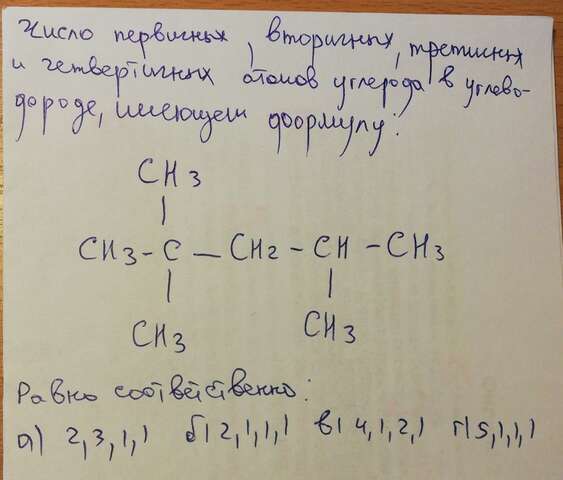 Число первичных, вторичных, третичных
и четвертичных атомов углерода в углево-
дороде, имеющем формулу:
CH3
|
CH3 - C — CH2 - CH - CH3
| |
CH3 CH3
Равно соответственно:
а) 2,3,1,1 б) 2,1,1,1 в) 4,1,2,1 г) 5,1,1,1